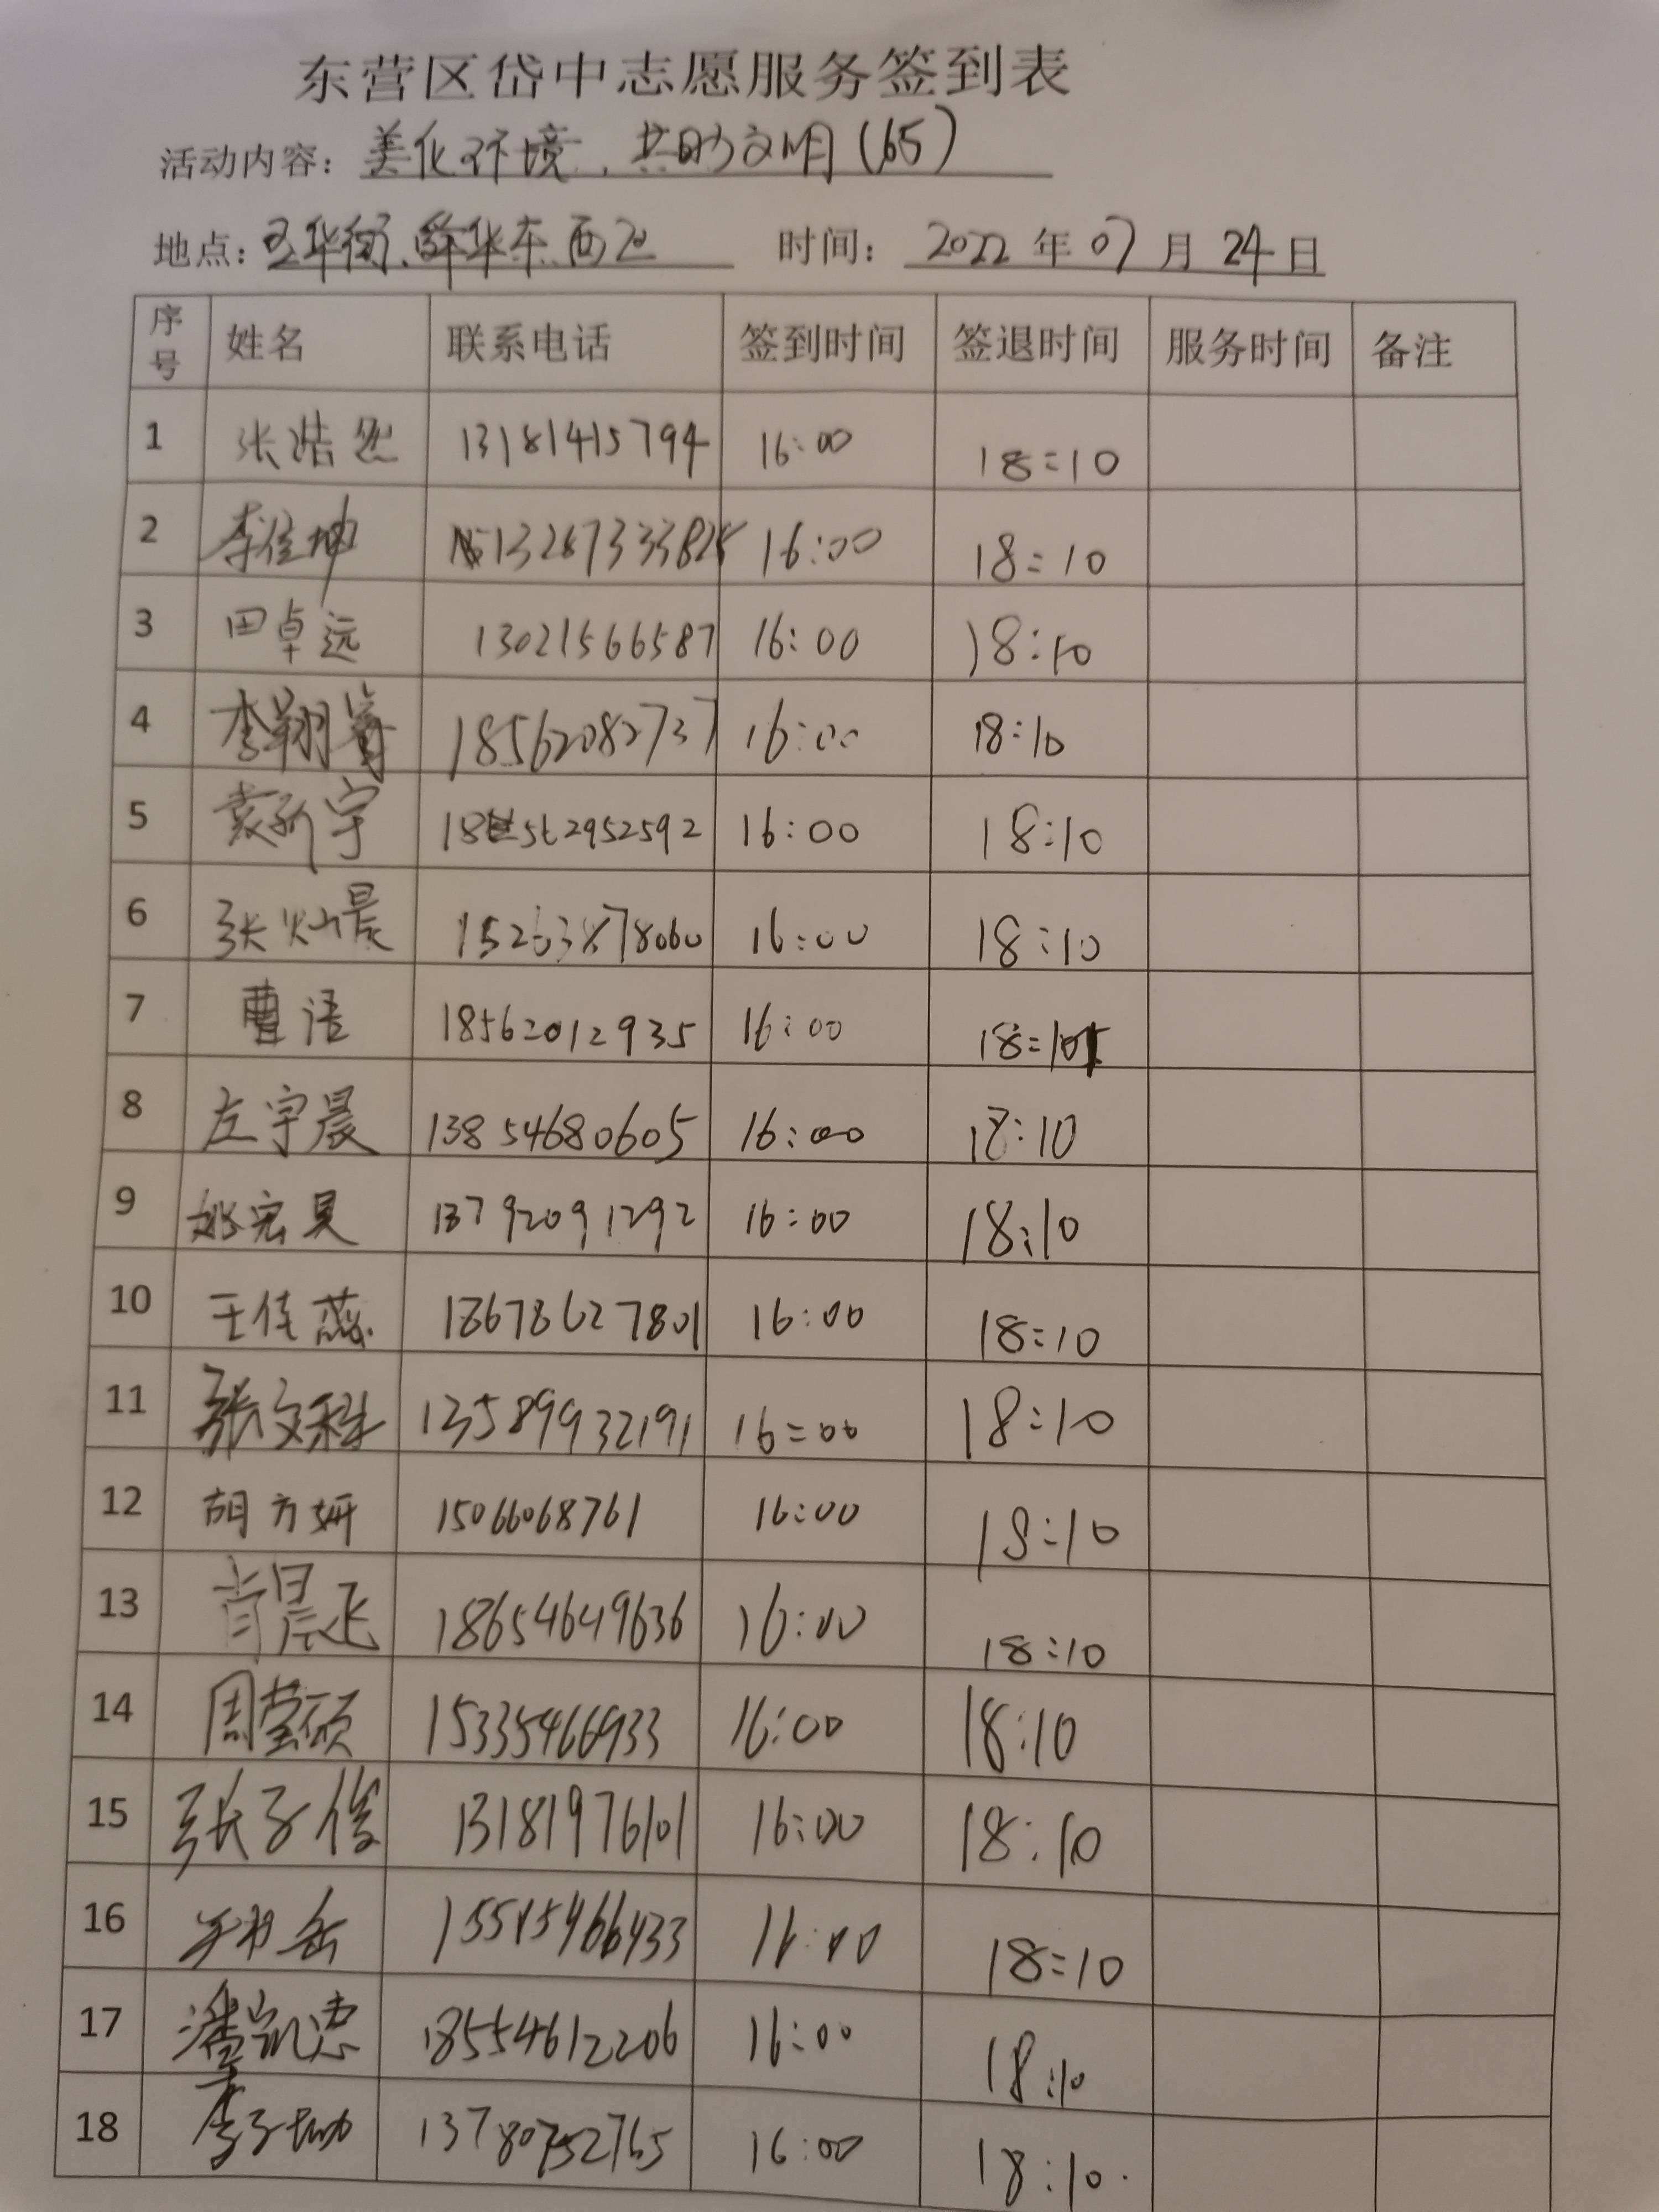 东营区岱中志愿服务签到表
活动内容：美化环境，共助文明（65）
地点： 西区 时间：2022年07月24日
序号 姓名 联系电话 签到时间 签退时间 服务时间 备注
1 张浩然 13181415794 16:00 18:10
2 李佳坤 16:00 18:10
3 田卓远 13021566587 16:00 18:10
4 李翔 18562082737 16:00 18:10
5 袁新宇 18562952592 16:00 18:10
6 张灿晨 16:00 18:10
7 曹语 18562012935 16:00 18:10
8 左宇晨 13854680605 16:00 18:10
9 姚宏昊 13792091292 16:00 18:10
10 王佳蕊 18678627801 16:00 18:10
11 张文科 13589932191 16:00 18:10
12 胡方妍 15066068761 16:00 18:10
13 肖晨飞 18654649636 16:00 18:10
14 周莹硕 15335466933 16:00 18:10
15 张子俊 13181976101 16:00 18:10
16 16:00 18:10
17 潘凯忠 18554612206 16:00 18:10
18 李子坤 13780752765 16:00 18:10